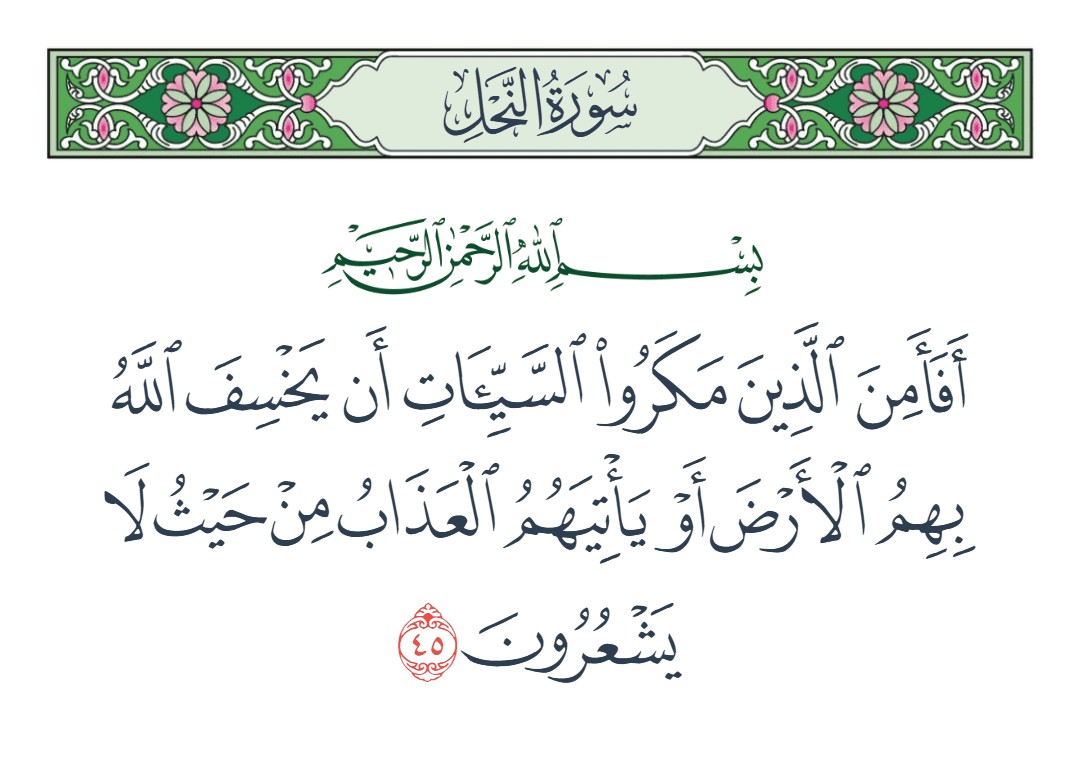 سُورَةُ النَّحْلِ
بِسْمِ ٱللَّهِ ٱلرَّحْمَٰنِ ٱلرَّحِيمِ
أَفَأَمِنَ ٱلَّذِينَ مَكَرُوا۟ ٱلسَّيِّـَٔاتِ أَن يَخْسِفَ ٱللَّهُ
بِهِمُ ٱلْأَرْضَ أَوْ يَأْتِيَهُمُ ٱلْعَذَابُ مِنْ حَيْثُ لَا
يَشْعُرُونَ ٤٥